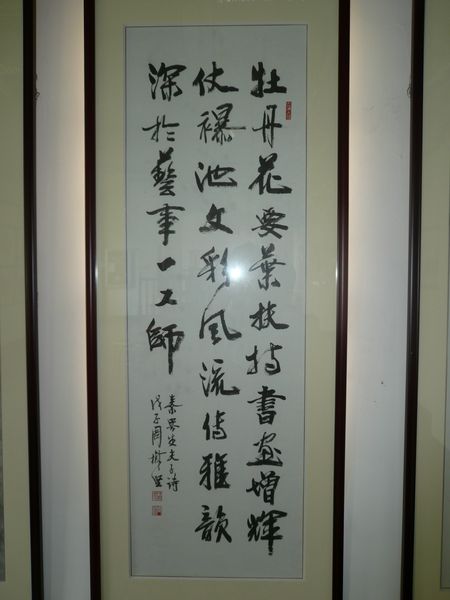 牡丹花要葉扶持書畫增輝
仗裸池文彩風流傳雅韻
深於藝事一工師
秦 先生詩
戊子周